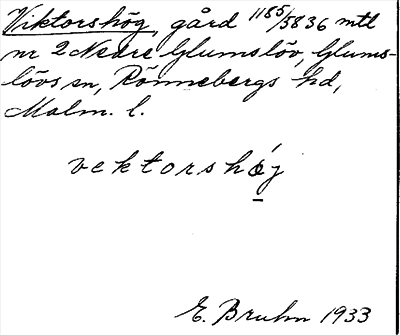 Viktorshög, gård 1185/5836 mtl
nr 2 Nedre Glumslöv, Glums-
lövs sn, Rönnebergs hd,
Malm. l.
vektorshǿj
E. Bruhn 1933